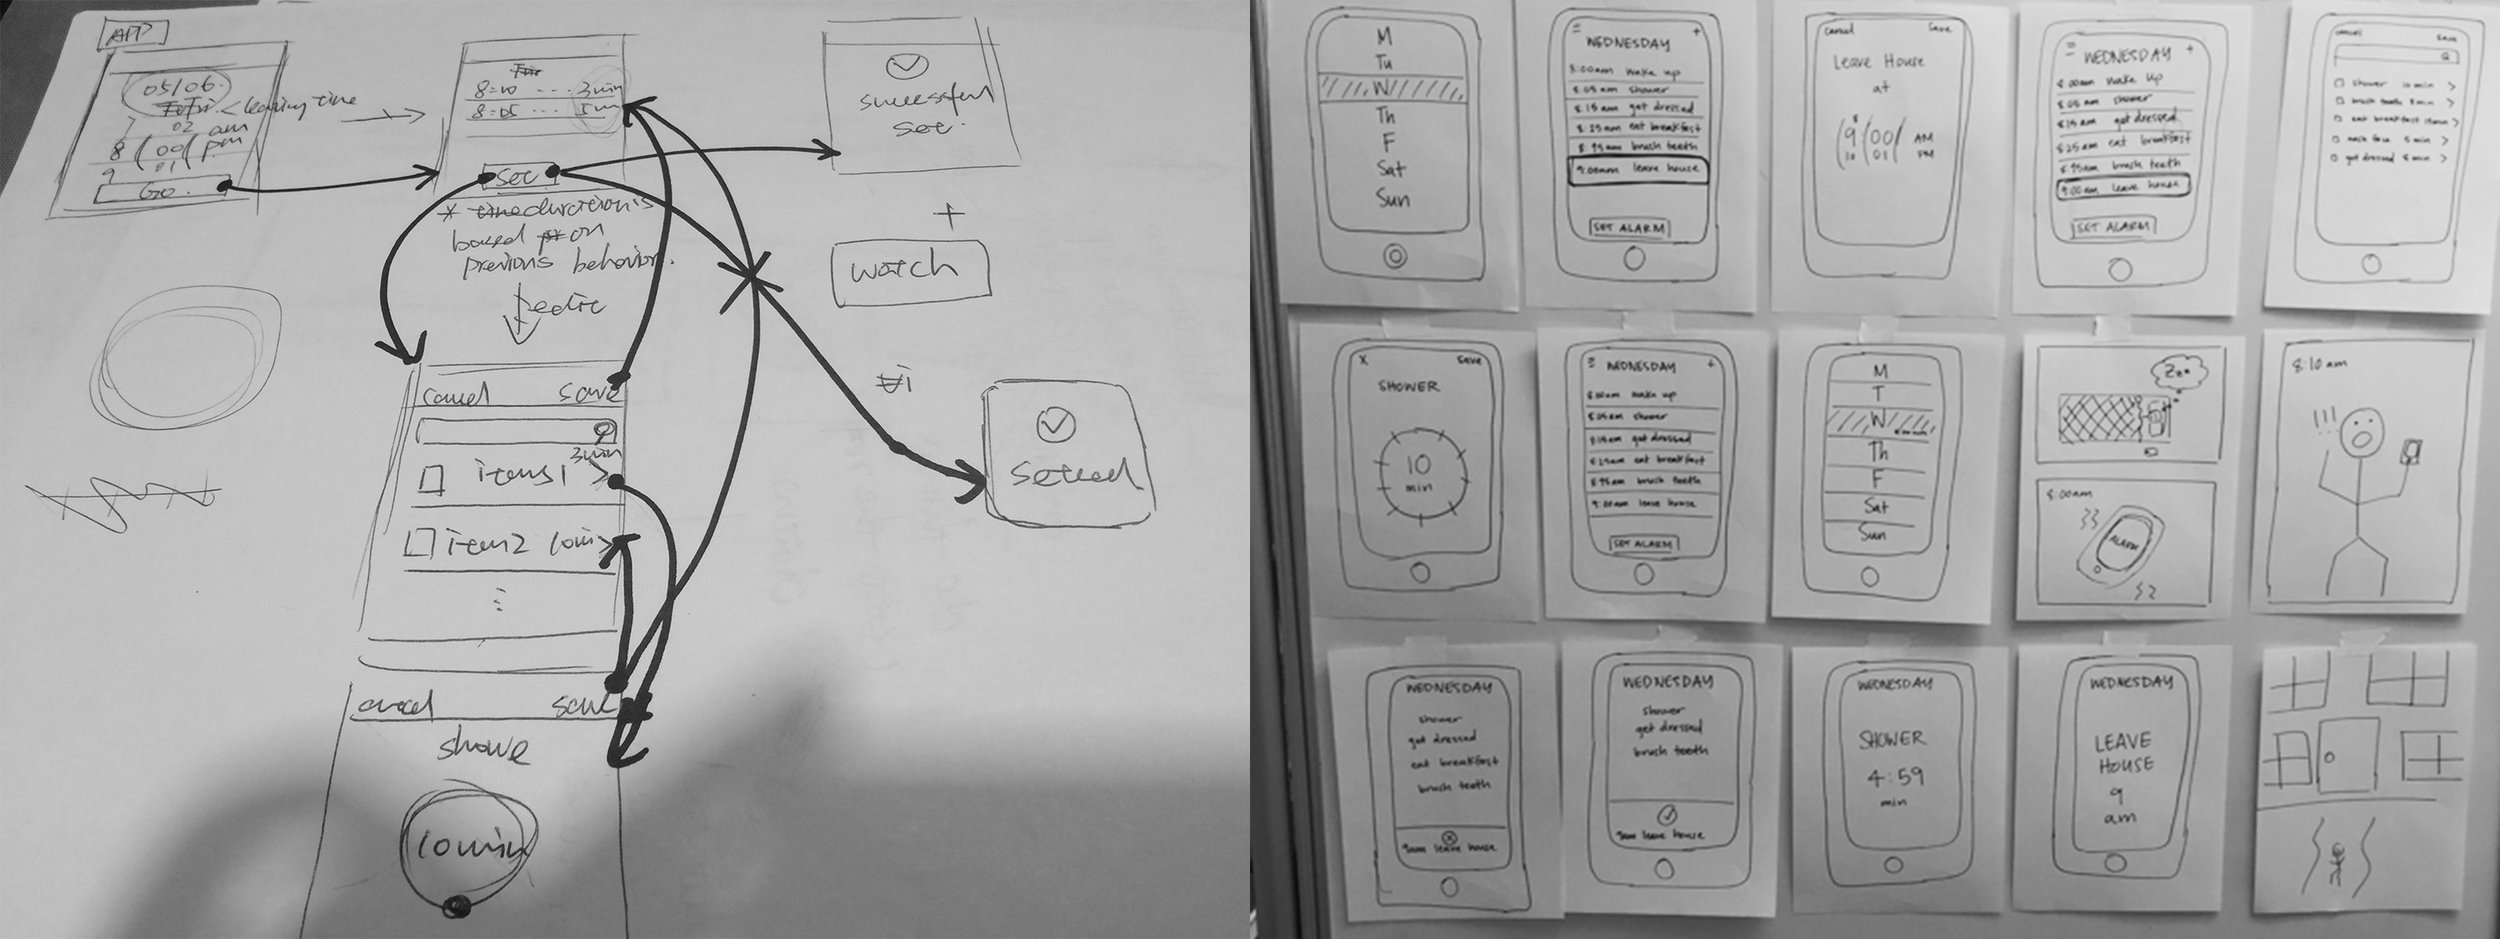 APP
05/06
< leaving time
02 am
8 00 pm
9 01
Go
8:10 ... 3min
8:05 ... 5min
set
* time duration is
based on
previous behavior.
successful
set.
+
watch
cancel save
3min
items1 >
item2 10min >
cancel save
showe
10min
M
Tu
W
Th
F
Sat
Sun
WEDNESDAY +
8:00am wake up
8:05am shower
8:15am get dressed
8:25am eat breakfast
8:45am brush teeth
9:00am leave house
SET ALARM
cancel save
Leave House
at
8
9 00 AM
10 01 PM
WEDNESDAY +
8:00am wake up
8:05am shower
8:15am get dressed
8:25am eat breakfast
8:45am brush teeth
9:00am leave house
SET ALARM
cancel save
shower 10 min >
brush teeth 5 min >
eat breakfast >
wash face 5 min >
get dressed 5 min >
X save
SHOWER
10
min
WEDNESDAY +
8:00am wake up
8:05am shower
8:15am get dressed
8:25am eat breakfast
8:45am brush teeth
9:00am leave house
SET ALARM
M
T
W
Th
F
Sat
Sun
Zzz
8:00am
ALARM
8:10 am
!!!
WEDNESDAY
shower
get dressed
eat breakfast
brush teeth
9am leave house
WEDNESDAY
shower
get dressed
brush teeth
9am leave house
WEDNESDAY
SHOWER
4:59
min
WEDNESDAY
LEAVE
HOUSE
9
am